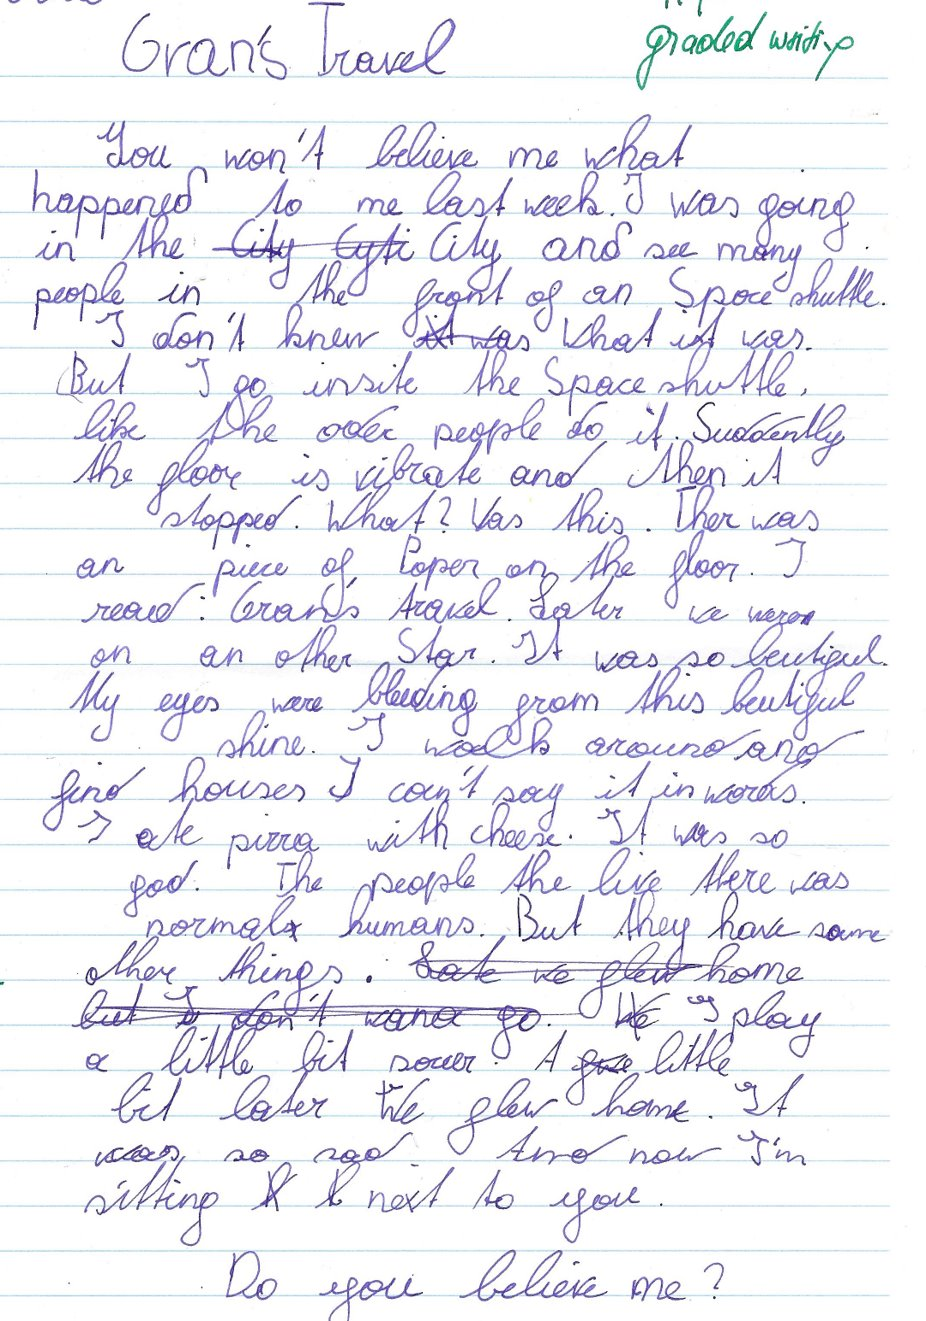 graded writing
Gran's Travel
You won't believe me what
happened to me last week. I was going
in the City Cyti City and see many
people in the front of an Space shuttle.
I don't knew it was what it was.
But I go insite the Space shuttle,
like the oder people do it. Suddently
the floor is vibrate and then it
stopped. What? Was this. Ther was
an piece of Paper on the floor. I
read: Gran's travel. Later we weren
on an other Star. It was so beutiful.
My eyes were bleeding from this beutiful
shine. I walk around and
find houses I can't say it in words.
I ate pizza with cheese. It was so
god. The people the live there was
normal humans. But they have some
other things. Late we flew home
but I don't wana go. We I play
a little bit soccer. A little
bit later We flew home. It
was so sad. And now I'm
sitting next to you.
Do you believe me?